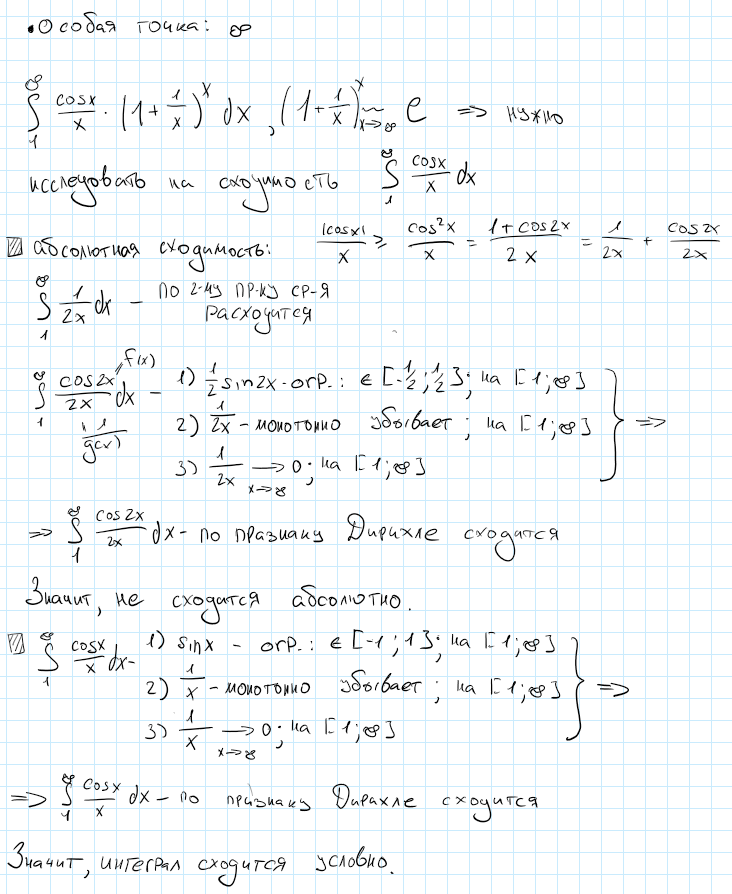 • Особая точка: ∞
∫₁^∞ cosx/x · (1+1/x)^x dx, (1+1/x)^x ~ e (x→∞) => нужно
исследовать на сходимость ∫₁^∞ cosx/x dx
абсолютная сходимость: |cosx|/x ≥ cos²x/x = (1+cos2x)/2x = 1/2x + cos2x/2x
∫₁^∞ 1/2x dx – по 2-му пр-ку ср-я
расходится
∫₁^∞ cos2x/2x dx – f(x) g(x)
1) 1/2 sin2x - огр.: ∈ [-1/2; 1/2]; на [1;∞]
2) 1/2x – монотонно убывает; на [1;∞]
3) 1/2x → 0; на [1;∞] x→∞
=>
=> ∫₁^∞ cos2x/2x dx – по признаку Дирихле сходится
Значит, не сходится абсолютно.
∫₁^∞ cosx/x dx –
1) sinx – огр.: ∈ [-1; 1]; на [1;∞]
2) 1/x – монотонно убывает; на [1;∞]
3) 1/x → 0; на [1;∞] x→∞
=>
=> ∫₁^∞ cosx/x dx – по признаку Дирихле сходится
Значит, интеграл сходится условно.